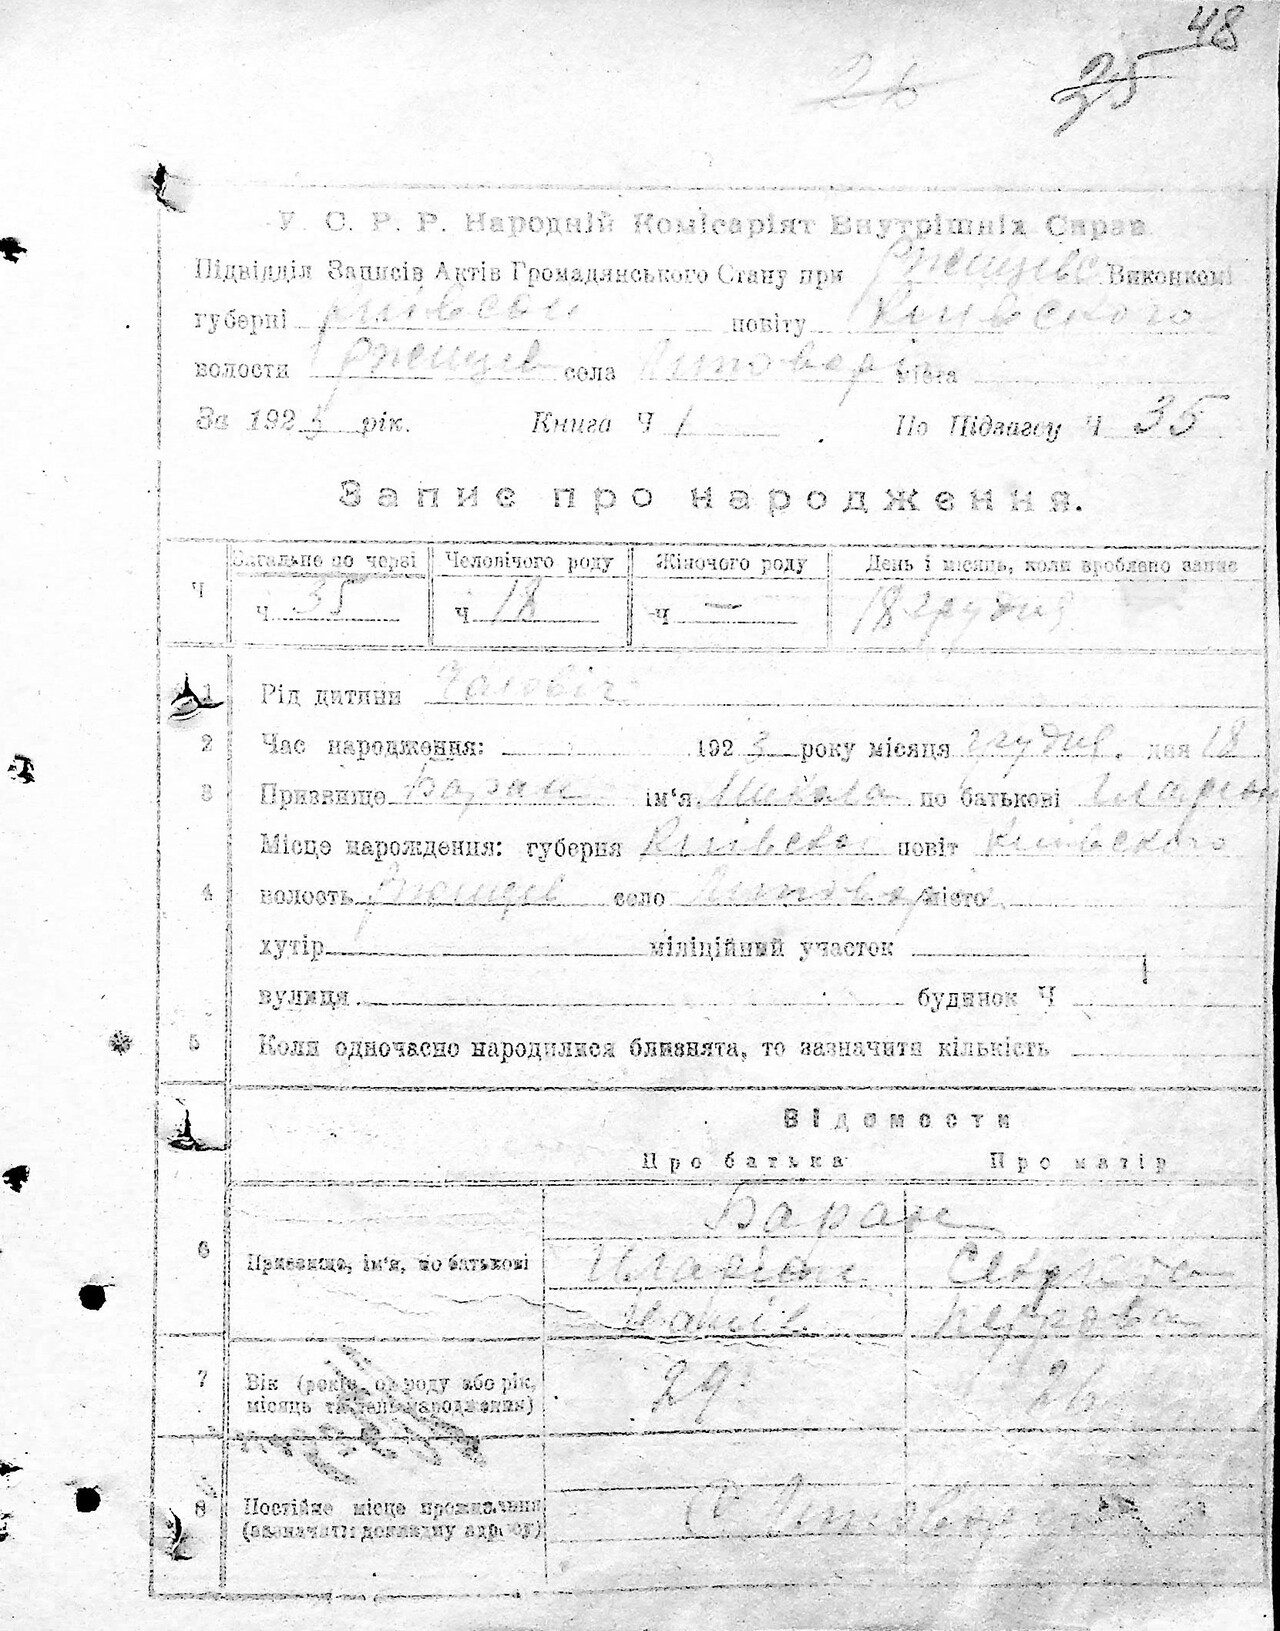 48
26
25
У. С. Р. Р. Народній Комісаріят Внутрішніх Справ
Підвідділ Записів Актів Громадянського Стану при Ржищівс Виконкомі
губерні Київскої повіту Київского
волости Ржищев села міста
За 1923 рік. Книга Ч 1 По Підзагсу Ч 35
Запис про народження.
Ч Загальне по черзі Человічого роду Жіночого роду День і місяць, коли зроблено запис
Ч 35 Ч 18 Ч — 18 грудня
1 Рід дитини Чаловіч
2 Час народження: 1923 року місяця грудня, дня 18
3 Призвище Баран ім'я Микола по батькові Іларіон
Місце нарождения: губерня Київскої повіт Київского
4 волость Ржищев село місто
хутір міліційний участок
вулиця будинок Ч
5 Коли одночасно народилися близнята, то зазначити кількість
Відомости
Про батька Про матір
Баран
6 Призвище, ім'я, по батькові Иларіон
Петрова
7 Вік (років от роду або рік, 29 26
місяць та день народження)
8 Постійне місце проживання
(зазначати докладну адресу)